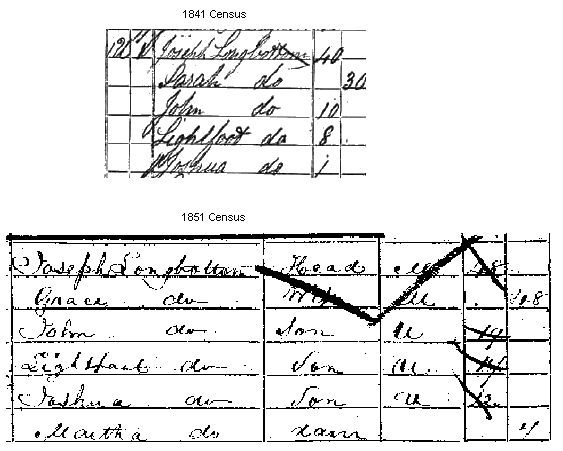 1841 Census
Joseph Longbottom 40
Sarah do 30
John do 10
Lightfoot do 8
Joshua do 1
1851 Census
Joseph Longbottom Head M 48
Grace do Wife M
John do Son U 19
Lightfoot do Son U
Joshua do Son U
Martha do